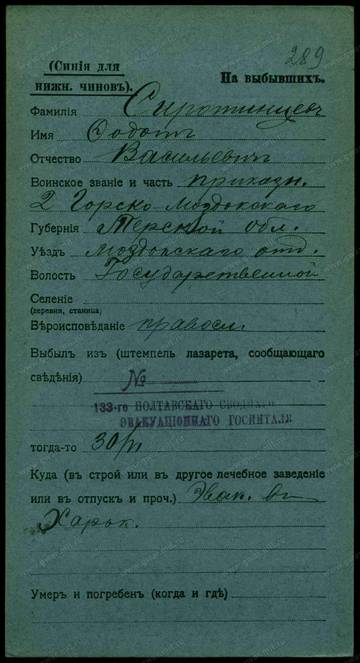 289
(Синія для
нижн. чиновъ).
На выбывшихъ.
Фамилія Сиротинцевъ
Имя Ѳодотъ
Отчество Васильевичъ
Воинское званіе и часть приказн.
2 Горско Моздокскаго
Губернія Терской обл.
Уѣздъ Моздокскаго отд.
Волость Государственной
Селеніе
(деревня, станица)
Вѣроисповѣданіе правосл.
Выбылъ изъ (штемпель лазарета, сообщающаго
свѣдѣнія) №
133-го ПОЛТАВСКАГО СВОДНАГО
ЭВАКУАЦІОННАГО ГОСПИТАЛЯ
тогда-то 30/
Куда (въ строй или въ другое лечебное заведеніе
или въ отпускъ и проч.) Эвак. въ
Харьк.
Умеръ и погребенъ (когда и гдѣ)